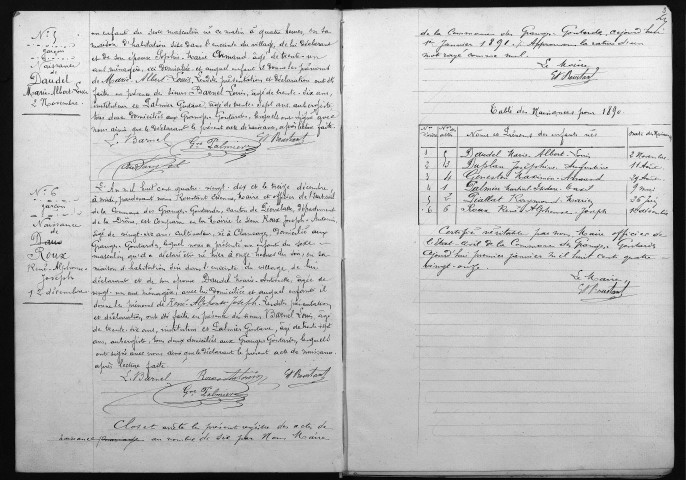 N° 5
garçon
Naissance
de
Daudel
Marie-Albert-Louis
2 Novembre
un enfant du sexe masculin né ce matin à quatre heures, en sa
maison d'habitation sise dans l'enceinte du village, de lui déclarant
et de son épouse Sophie-Marie âgée de trente-un
ans ménagère, et domiciliée et auquel enfant il donne les prénoms
de Marie Albert Louis, lesdites présentation et déclaration ont été
faites en présence des sieurs Barnel Louis, âgé de trente-six ans,
instituteur et Palmier Gustave, âgé de trente sept ans aubergiste
tous deux domiciliés aux Granges Gontardes, lesquels ont signé avec
nous ainsi que le déclarant le présent acte de naissance, après lecture faite.
L. Barnel Gve Palmier Et Roustant
N° 6
garçon
Naissance
de
Roux
René-Alphonse
Joseph
12 décembre
L'an mil huit cent quatre-vingt-dix et le treize décembre,
à midi, pardevant nous Roustant Etienne, Maire et officier de l'état civil
de la Commune des Granges Gontardes, canton de Pierrelatte, département
de la Drôme, est comparu en la mairie le sieur Roux Joseph-Antoine
âgé de vingt-six ans cultivateur, né à Clansayes, domicilié aux
Granges Gontardes, lequel nous a présenté un enfant du sexe
masculin qu'il a déclaré être né hier à onze heures du soir en sa
maison d'habitation sise dans l'enceinte du village de lui
déclarant et de son épouse Daudel Marie, âgée de
vingt-un ans ménagère, avec lui domiciliée et auquel enfant il
donne les prénoms de René Alphonse Joseph, lesdites présentation
et déclaration, ont été faites en présence des sieurs Barnel Louis, âgé
de trente-six ans, instituteur et Palmier Gustave, âgé de trente-sept
ans, aubergiste, tous deux domiciliés aux Granges Gontardes, lesquels
ont signé avec nous ainsi que le déclarant le présent acte de naissance
après lecture faite.
L. Barnel Roux Antoine Et Roustant
Gve Palmier
Clos et arrêté le présent registre des actes de
naissance au nombre de six par Nous Maire
de la Commune des Granges-Gontardes, aujourd'hui
1er Janvier 1891. Approuvons la rature d'un
mot rayé comme nul.
Le Maire
Et Roustant
Table des Naissances pour 1890
Nos Nos des actes Noms et Prénoms des enfants nés Date des Naissances
1 5 Daudel Marie Albert-Louis 2 Novembre
2 3 Duplan Joséphine 11 Août
3 4 Maximin-Armand 29 Août
4 1 Palmier 9 mai
5 2 Raymond 26 juin
6 6 Roux René Alphonse-Joseph 12 décembre
Certifié véritable par nous Maire officier de
l'état-civil de la Commune des Granges Gontardes
aujourd'hui premier janvier mil huit cent quatre-
vingt-onze
Le Maire
Et Roustant